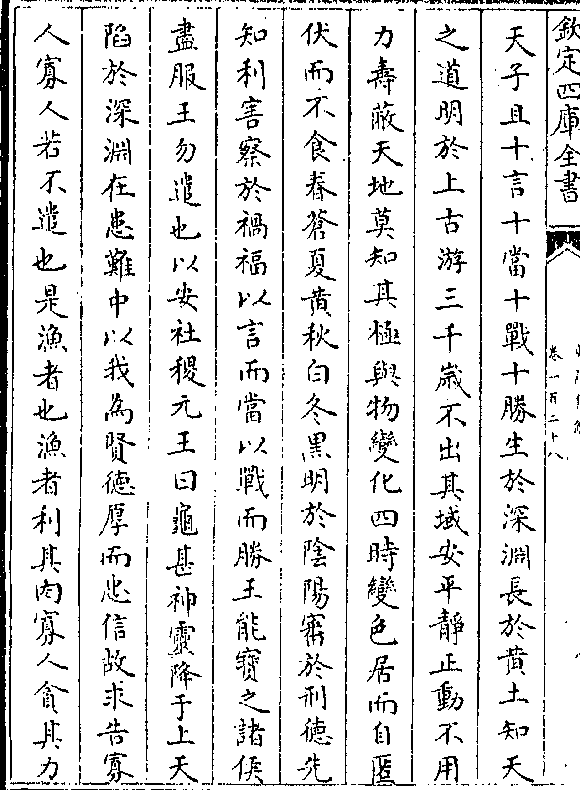 欽定四庫全書
卷一百二十八
天子且十言十當十戰十勝生於深淵長於黄土知天
之道明於上古游三千嵗不出其域安平靜正動不用
力壽蔽天地莫知其極與物變化四時變色居而自匿
伏而不食春蒼夏黄秋白冬黒明於陰陽審於刑德先
知利害察於禍福以言而當以戰而勝王能寶之諸侯
盡服王勿遣也以安社稷元王曰龜甚神靈降于上天
陷於深淵在患難中以我為賢德厚而忠信故求告寡
人寡人若不遣也是漁者也漁者利其肉寡人貪其力